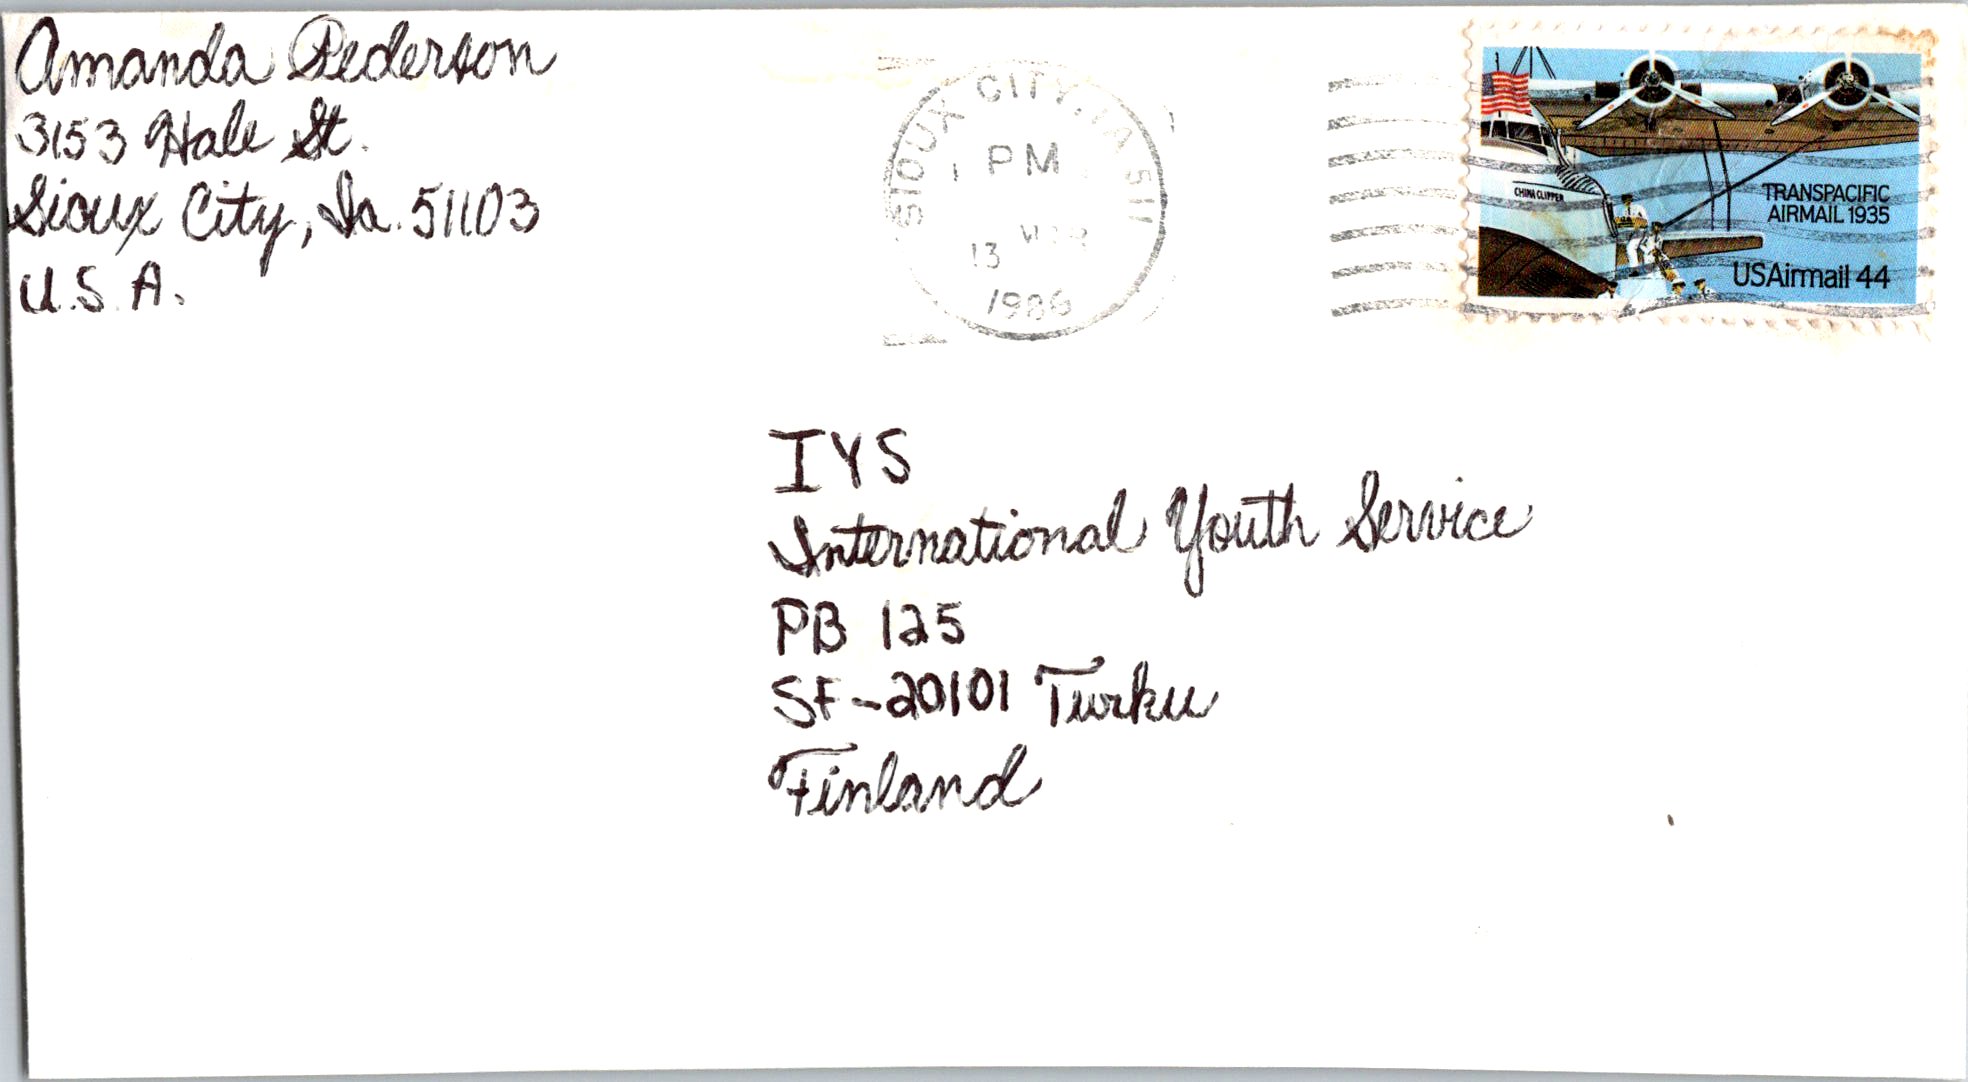 Amanda Pederson
3153 Hale St.
Sioux City, Ia. 51103
U.S.A.
SIOUX CITY, IA 511
PM
13
1986
CHINA CLIPPER
TRANSPACIFIC
AIRMAIL 1935
USAirmail 44
IYS
International Youth Service
PB 125
SF-20101 Turku
Finland